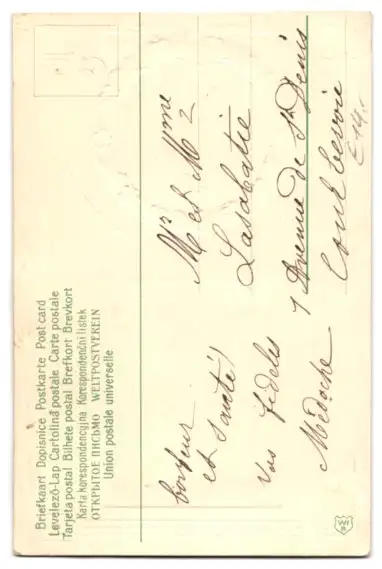 Briefkaart Dopisnice Postkarte Post card
Levelező-Lap Cartolina postale Carte postale
Tarjeta postal Bilhete postal Brefkort Brevkort
Karta korespondencyjna Korespondenční lístek
ОТКРЫТОЕ ПИСЬМО WELTPOSTVEREIN
Union postale universelle
bonheur
et santé!
vos fidèles
Médoche
Mr et Mme
Lasabatie
7 Avenue de St Denis
Courbevoie